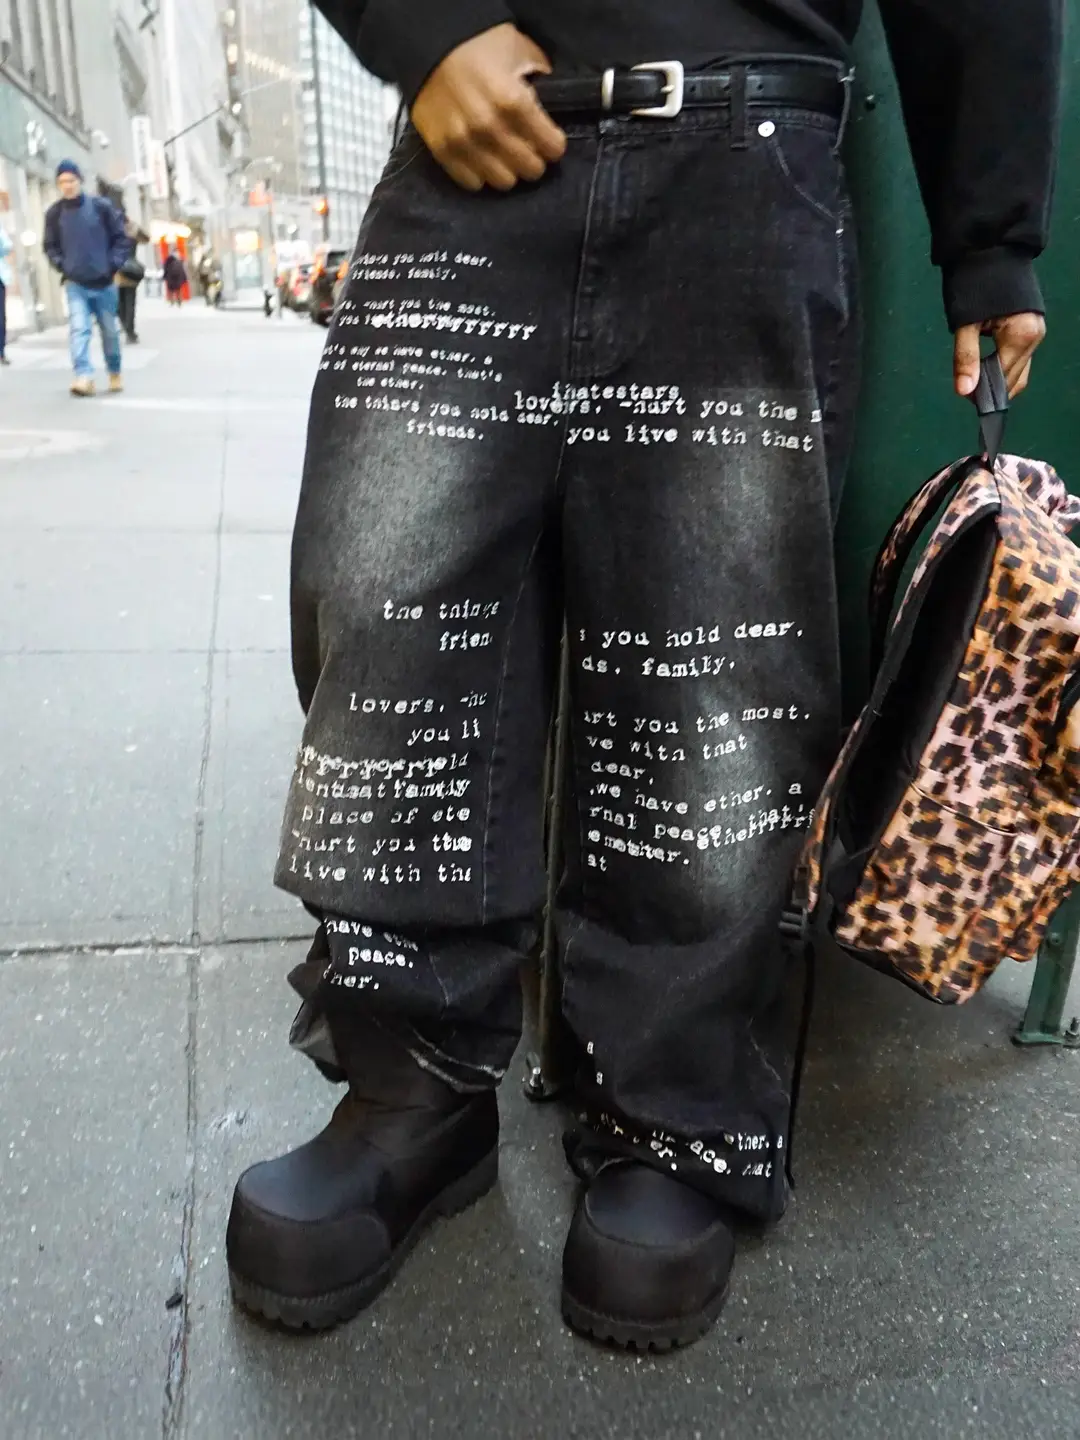 things you hold dear.
friends. family.
-hurt you the most.
you etherrrrrrrr
that's why we have ether. a
of eternal peace. that's
the ether.
the things you hold dear.
friends.
ihatestars
lovers. -hurt you the
you live with that
the things
frien
lovers. -hu
you li
place of ete
-hurt you the
live with tha
have ethe
peace.
ther.
s you hold dear.
ds. family.
urt you the most.
ve with that
dear.
.we have ether. a
rnal peace. that's
etherrrrr
at
a
ther. a
ace. hat